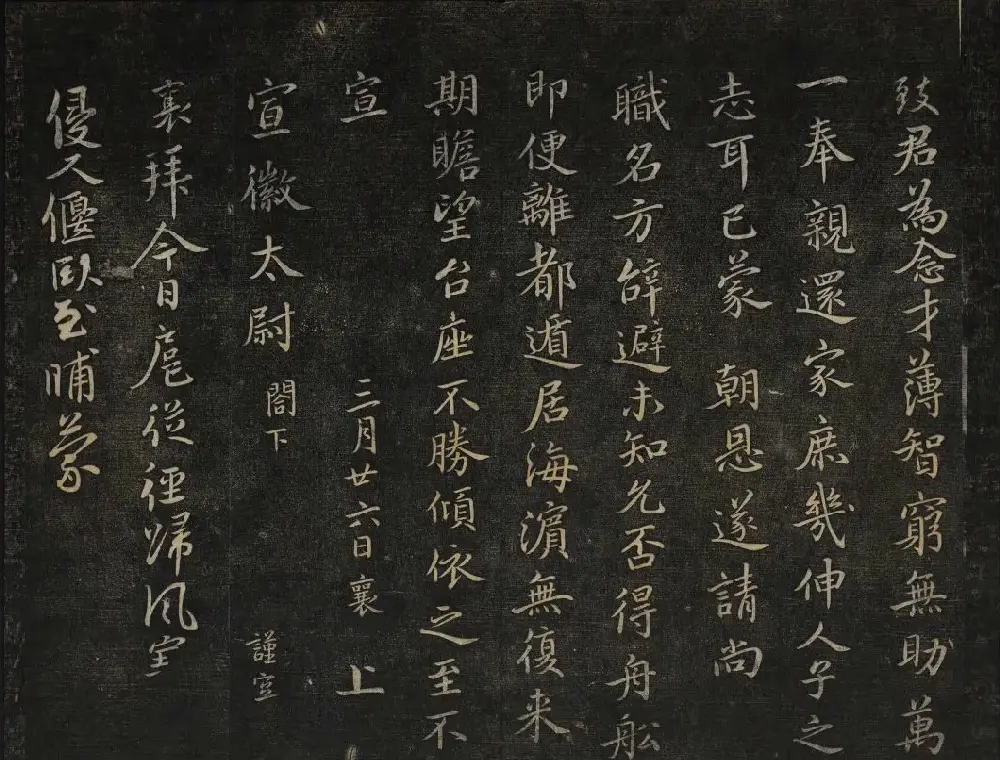 致君為念才薄智窮無助萬
一奉親還家庶幾伸人子之
志耳已蒙 朝恩遂請尚
職名方辭避未知允否得舟舩
即便離都遁居海濵無復来
期瞻望台座不勝傾依之至不
宣 三月廿六日襄 上
宣徽太尉 閤下 謹空
襄拜今日扈從徑歸風室
侵又偃臥至晡蒙